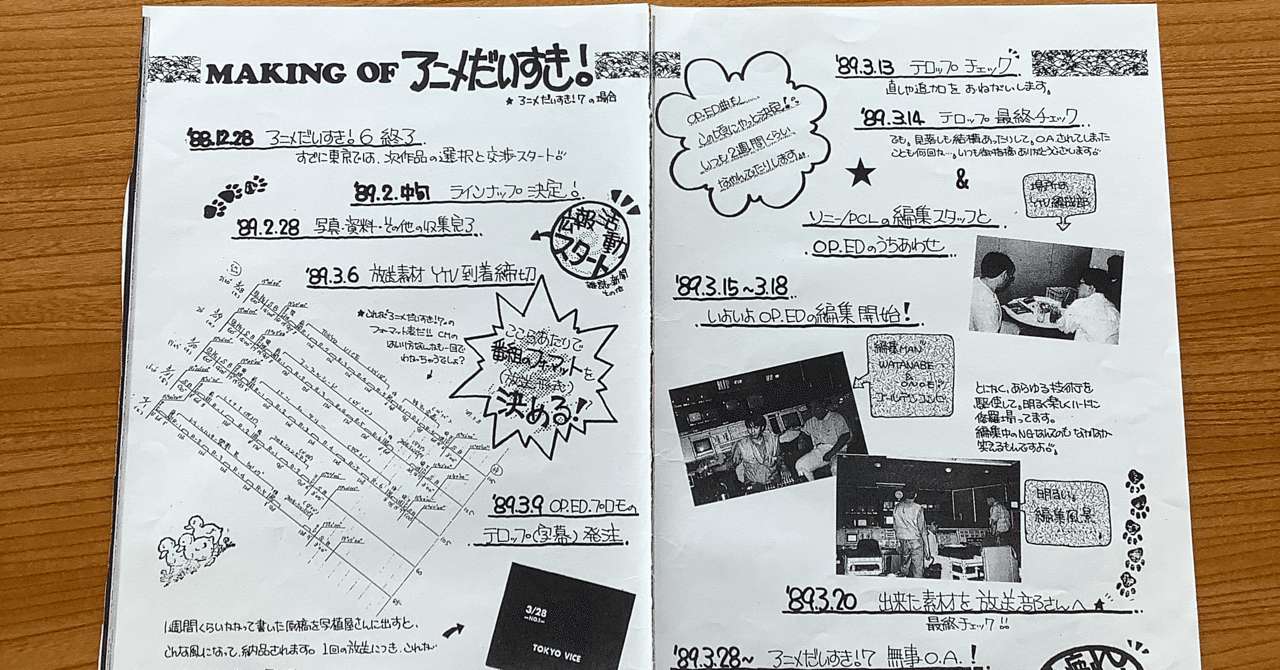 MAKING OF アニメだいすき!
★アニメだいすき!7の場合
'88.12.28 アニメだいすき!6 終了
すでに東京では、次作品の選択と交渉スタート
'89.2.中旬 ラインナップ決定!
'89.2.28 写真・資料・その他の収集完了
広報活動
スタート
雑誌・新聞
その他
'89.3.6 放送素材 YTV 到着締切
★これがアニメだいすき!7の
フォーマット表だ!! CMの
はいり方なんかも一目で
わかっちゃうでしょ?
ここらあたりで
番組のフォーマットを
(放送形式)
決める!
'89.3.9 OP.ED.プロモの
テロップ(字幕)発注
1週間くらいかかって書いた原稿を写植屋さんに出すと、
こんな風になって、納品されます。1回の放送につき、これが
3/28
-NO.1-
TOKYO VICE
OP.ED曲も……
この頃にやっと決定!?
いつも2週間くらい、
なやんでたりします
'89.3.13 テロップ チェック
直しや追加を おねがいします。
'89.3.14 テロップ 最終チェック
でも、見落しも結構あったりして。O.A.されてしまった
ことも何回か…。いつも御指摘ありがとうございます
★ &
場所は
YTV編成部
ソニー/PCLの編集スタッフと
OP.EDのうちあわせ
'89.3.15~3.18
いよいよ OP.EDの編集開始!
編集MAN
WATANABE
ONOE
ゴールデンコンビ
とにかく、あらゆる技術を
駆使して。明るく楽しくハードに
修羅場ってます。
編集中のNGなんてのも なかなか
笑えるもんですよ。
明るい
編集風景
'89.3.20 出来た素材を放送部さんへ★
最終チェック!!
'89.3.28~ アニメだいすき!7 無事O.A.!